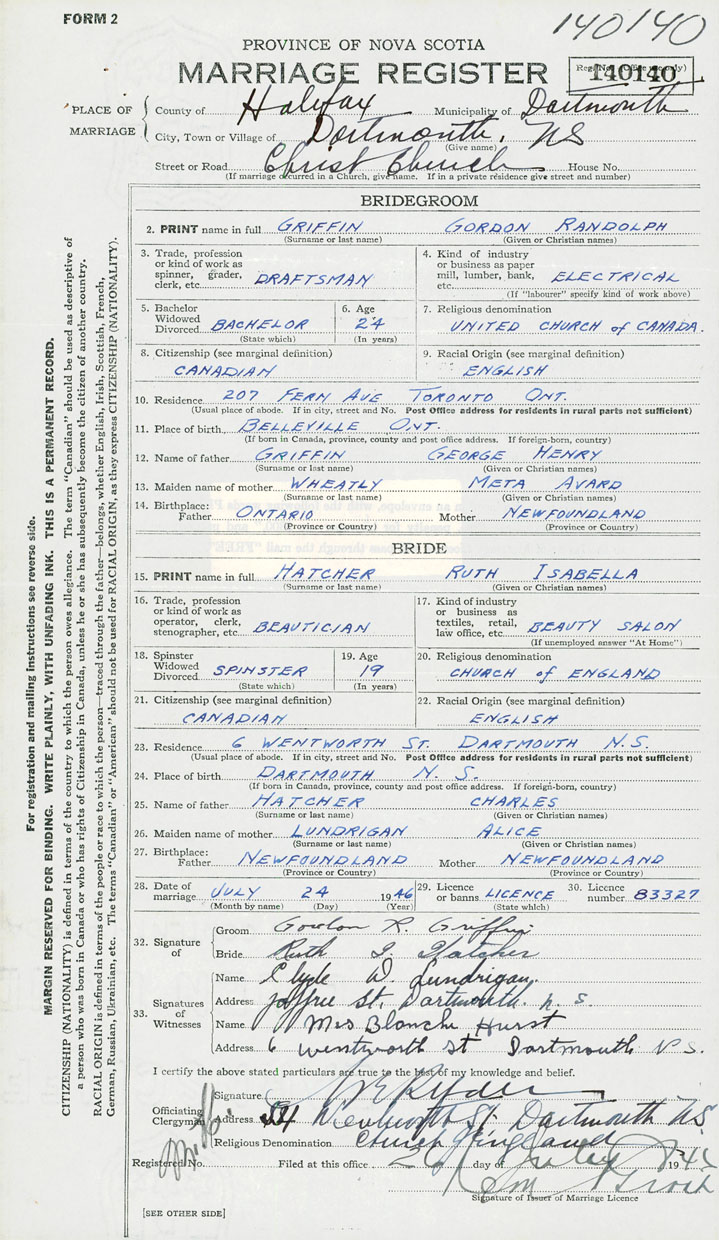 FORM 2
140140
PROVINCE OF NOVA SCOTIA
MARRIAGE REGISTER
140140
PLACE OF MARRIAGE
County of Halifax Municipality of Dartmouth
City, Town or Village of Dartmouth, NS
(Give name)
Street or Road Christ Church House No.
(If marriage occurred in a Church, give name. If in a private residence give street and number)
BRIDEGROOM
2. PRINT name in full GRIFFIN GORDON RANDOLPH
(Surname or last name) (Given or Christian names)
3. Trade, profession or kind of work as spinner, grader, clerk, etc. DRAFTSMAN
4. Kind of industry or business as paper mill, lumber, bank, etc. ELECTRICAL
(If "labourer" specify kind of work above)
5. Bachelor Widowed Divorced BACHELOR
(State which)
6. Age 24
(In years)
7. Religious denomination
UNITED CHURCH of CANADA.
8. Citizenship (see marginal definition)
CANADIAN
9. Racial Origin (see marginal definition)
ENGLISH
10. Residence 207 FERN AVE TORONTO ONT.
(Usual place of abode. If in city, street and No. Post Office address for residents in rural parts not sufficient)
11. Place of birth BELLEVILLE ONT.
(If born in Canada, province, county and post office address. If foreign-born, country)
12. Name of father GRIFFIN GEORGE HENRY
(Surname or last name) (Given or Christian names)
13. Maiden name of mother WHEATLY META AVARD
(Surname or last name) (Given or Christian names)
14. Birthplace:
Father ONTARIO Mother NEWFOUNDLAND
(Province or Country) (Province or Country)
BRIDE
15. PRINT name in full HATCHER RUTH ISABELLA
(Surname or last name) (Given or Christian names)
16. Trade, profession or kind of work as operator, clerk, stenographer, etc. BEAUTICIAN
17. Kind of industry or business as textiles, retail, law office, etc. BEAUTY SALON
(If unemployed answer "At Home")
18. Spinster Widowed Divorced SPINSTER
(State which)
19. Age 19
(In years)
20. Religious denomination
CHURCH of ENGLAND
21. Citizenship (see marginal definition)
CANADIAN
22. Racial Origin (see marginal definition)
ENGLISH
23. Residence 6 WENTWORTH ST. DARTMOUTH N.S.
(Usual place of abode. If in city, street and No. Post Office address for residents in rural parts not sufficient)
24. Place of birth DARTMOUTH N. S.
(If born in Canada, province, county and post office address. If foreign-born, country)
25. Name of father HATCHER CHARLES
(Surname or last name) (Given or Christian names)
26. Maiden name of mother LUNDRIGAN ALICE
(Surname or last name) (Given or Christian names)
27. Birthplace:
Father NEWFOUNDLAND Mother NEWFOUNDLAND
(Province or Country) (Province or Country)
28. Date of marriage JULY 24 1946
(Month by name) (Day) (Year)
29. Licence or banns LICENCE
(State which)
30. Licence number 83327
32. Signature of
Groom Gordon R. Griffin
Bride Ruth I. Hatcher
33. Signatures of Witnesses
Name Clyde W. Lundrigan
Address Jaffree St. Dartmouth. n. s.
Name Mrs Blanche Hurst
Address 6 Wentworth St Dartmouth N.S.
I certify the above stated particulars are true to the best of my knowledge and belief.
Officiating Clergyman
Signature
Address 54 Wentworth St. Dartmouth NS
Religious Denomination Church of England
Registered No. Filed at this office 26 day of July 1946
Signature of Issuer of Marriage Licence
[SEE OTHER SIDE]
For registration and mailing instructions see reverse side.
MARGIN RESERVED FOR BINDING. WRITE PLAINLY, WITH UNFADING INK. THIS IS A PERMANENT RECORD.
CITIZENSHIP (NATIONALITY) is defined in terms of the country to which the person owes allegiance. The term "Canadian" should be used as descriptive of
a person who was born in Canada or who has rights of Citizenship in Canada, unless he or she has subsequently become the citizen of another country.
RACIAL ORIGIN is defined in terms of the people or race to which the person—traced through the father—belongs, whether English, Irish, Scottish, French,
German, Russian, Ukrainian, etc. The terms "Canadian" or "American" should not be used for RACIAL ORIGIN, as they express CITIZENSHIP (NATIONALITY).